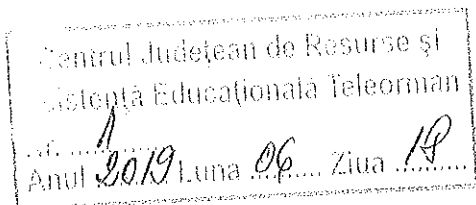 Centrul Județean de Resurse și
Asistență Educațională Teleorman
Nr. 1
Anul 2019 Luna 06 Ziua